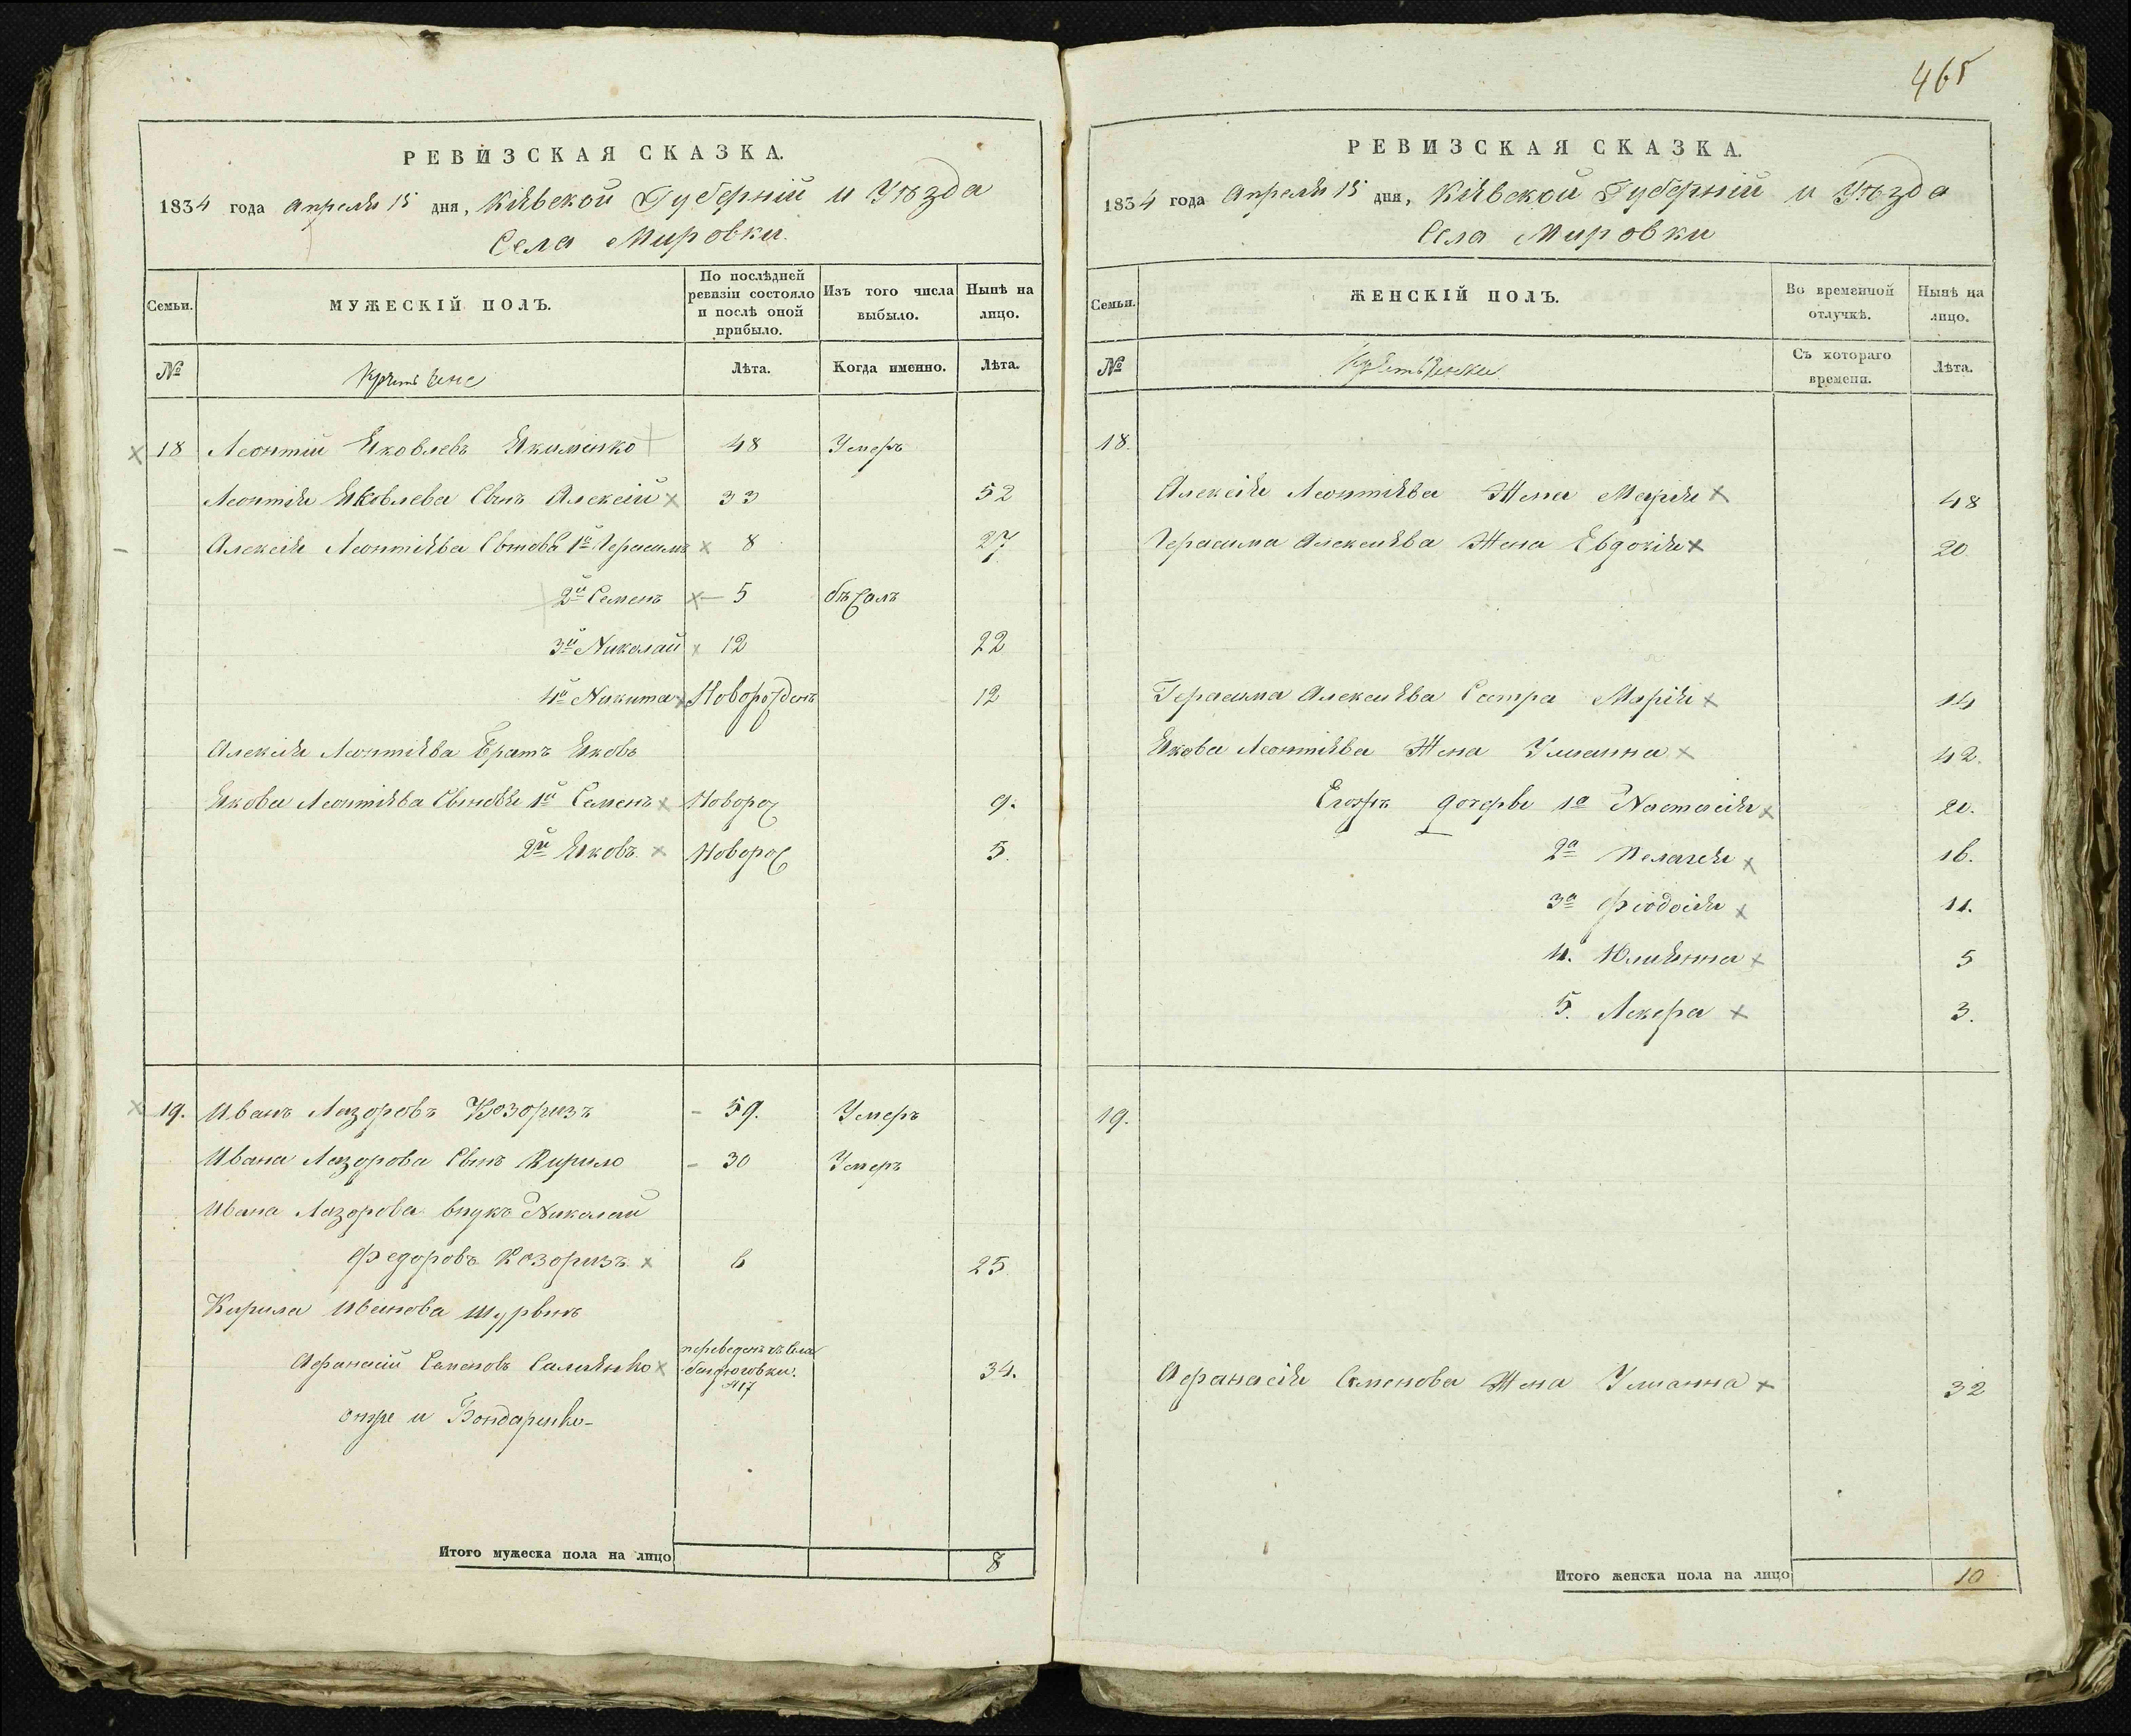 РЕВИЗСКАЯ СКАЗКА.
1834 года Апреля 15 дня, Кіевской Губерніи и Уѣзда
Села Мировки.
Семьи.
МУЖЕСКІЙ ПОЛЪ.
По послѣдней ревизіи состояло и послѣ оной прибыло.
Изъ того числа выбыло.
Нынѣ на лицо.
№
Крестьяне
Лѣта.
Когда именно.
Лѣта.
18 Леонтій Яковлевъ Якименко 48 Умеръ
Леонтія Яковлева Сынъ Алексій 33 52
Алексія Леонтіева Сыновья 1й Герасимъ 8 27
2й Семенъ 5 бѣжалъ
3й Николай 12 22
4й Никита Новорожденъ 12
Алексія Леонтіева Братъ Яковъ
Якова Леонтіева Сыновья 1й Семенъ Новорож 9.
2й Яковъ Новорож 5.
19. Иванъ Лазоровъ Козоризъ 59. Умеръ
Ивана Лазорова Сынъ Кирило 30 Умеръ
Ивана Лазорова внукъ Николай
Федоровъ Козоризъ 6 25
Кирила Иванова Шурынъ
Афанасій Семеновъ 34.
переведенъ
№17
онже и Бондаренко
Итого мужеска пола на лицо 8
465
РЕВИЗСКАЯ СКАЗКА.
1834 года Апреля 15 дня, Кіевской Губерніи и Уѣзда
Села Мировки
Семьи.
ЖЕНСКІЙ ПОЛЪ.
Во временной отлучкѣ.
Нынѣ на лицо.
№
Крестьянки
Съ котораго времени.
Лѣта.
18.
Алексія Леонтіева Жена Марія 48
Герасима Алексіева Жена Евдокія 20
Герасима Алексіева Сестра Марія 14
Якова Леонтіева Жена Улианна 42.
Егожъ дочеры 1а Настасія 20.
2а Пелагея 16.
3а Фіодосія 11.
4. Юлиянна 5
5. Лекера 3.
19.
Афанасія Семенова Жена Улианна 32
Итого женска пола на лицо 10